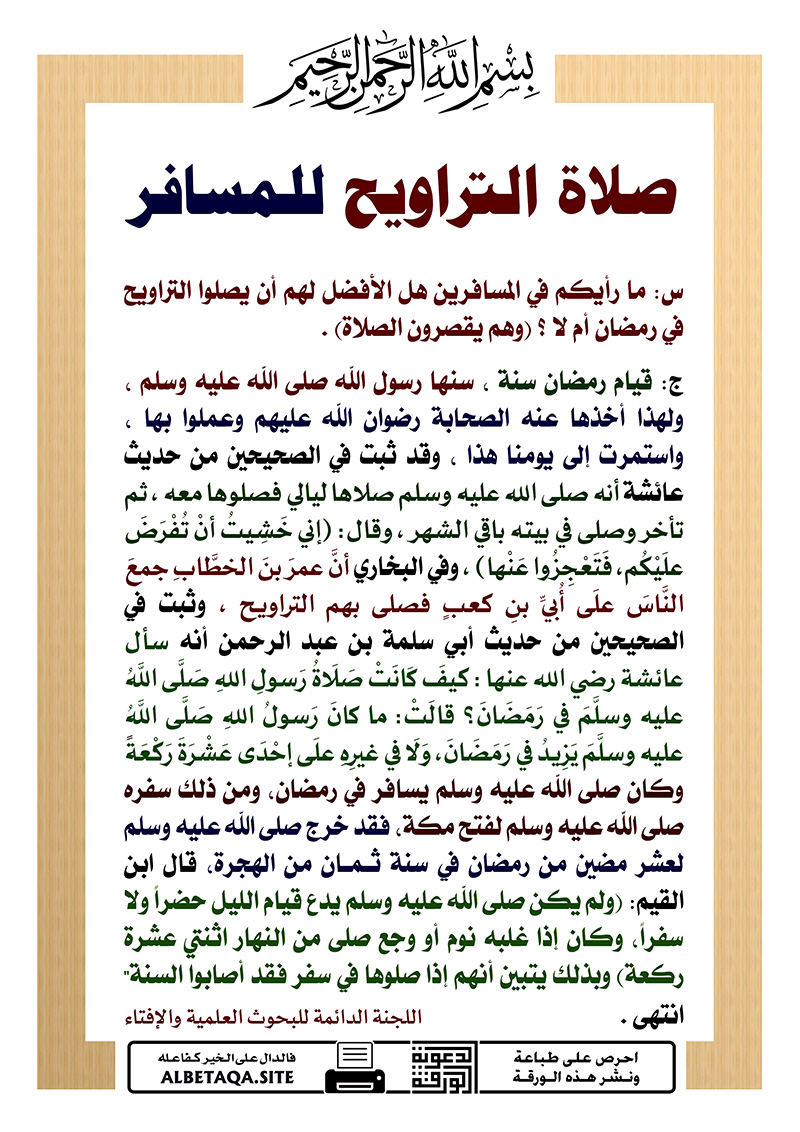 بِسْمِ اللَّهِ الرَّحْمَنِ الرَّحِيمِ
صلاة التراويح للمسافر
س: ما رأيكم في المسافرين هل الأفضل لهم أن يصلوا التراويح
في رمضان أم لا ؟ (وهم يقصرون الصلاة) .
ج: قيام رمضان سنة ، سنها رسول الله صلى الله عليه وسلم ،
ولهذا أخذها عنه الصحابة رضوان الله عليهم وعملوا بها ،
واستمرت إلى يومنا هذا ، وقد ثبت في الصحيحين من حديث
عائشة أنه صلى الله عليه وسلم صلاها ليالي فصلوها معه ، ثم
تأخر وصلى في بيته باقي الشهر ، وقال: (إني خَشِيتُ أنْ تُفْرَضَ
علَيْكُم، فَتَعْجِزُوا عَنْها) ، وفي البخاري أنَّ عمرَ بنَ الخطَّابِ جمعَ
النَّاسَ علَى أُبيِّ بنِ كعبٍ فصلى بهم التراويح ، وثبت في
الصحيحين من حديث أبي سلمة بن عبد الرحمن أنه سأل
عائشة رضي الله عنها : كيفَ كَانَتْ صَلَاةُ رَسولِ اللهِ صَلَّى اللَّهُ
عليه وسلَّمَ في رَمَضَانَ؟ قالَتْ: ما كانَ رَسولُ اللهِ صَلَّى اللَّهُ
عليه وسلَّمَ يَزِيدُ في رَمَضَانَ، وَلَا في غيرِهِ علَى إحْدَى عَشْرَةَ رَكْعَةً
وكان صلى الله عليه وسلم يسافر في رمضان، ومن ذلك سفره
صلى الله عليه وسلم لفتح مكة، فقد خرج صلى الله عليه وسلم
لعشر مضين من رمضان في سنة ثـمـان من الهجرة، قال ابن
القيم: (ولم يكن صلى الله عليه وسلم يدع قيام الليل حضراً ولا
سفراً، وكان إذا غلبه نوم أو وجع صلى من النهار اثنتي عشرة
ركعة) وبذلك يتبين أنهم إذا صلوها في سفر فقد أصابوا السنة"
انتهى . اللجنة الدائمة للبحوث العلمية والإفتاء
احرص على طباعة
ونـشر هـذه الـورقـة
الدعوية
الورقة
فالدال على الخير كفاعله
ALBETAQA.SITE